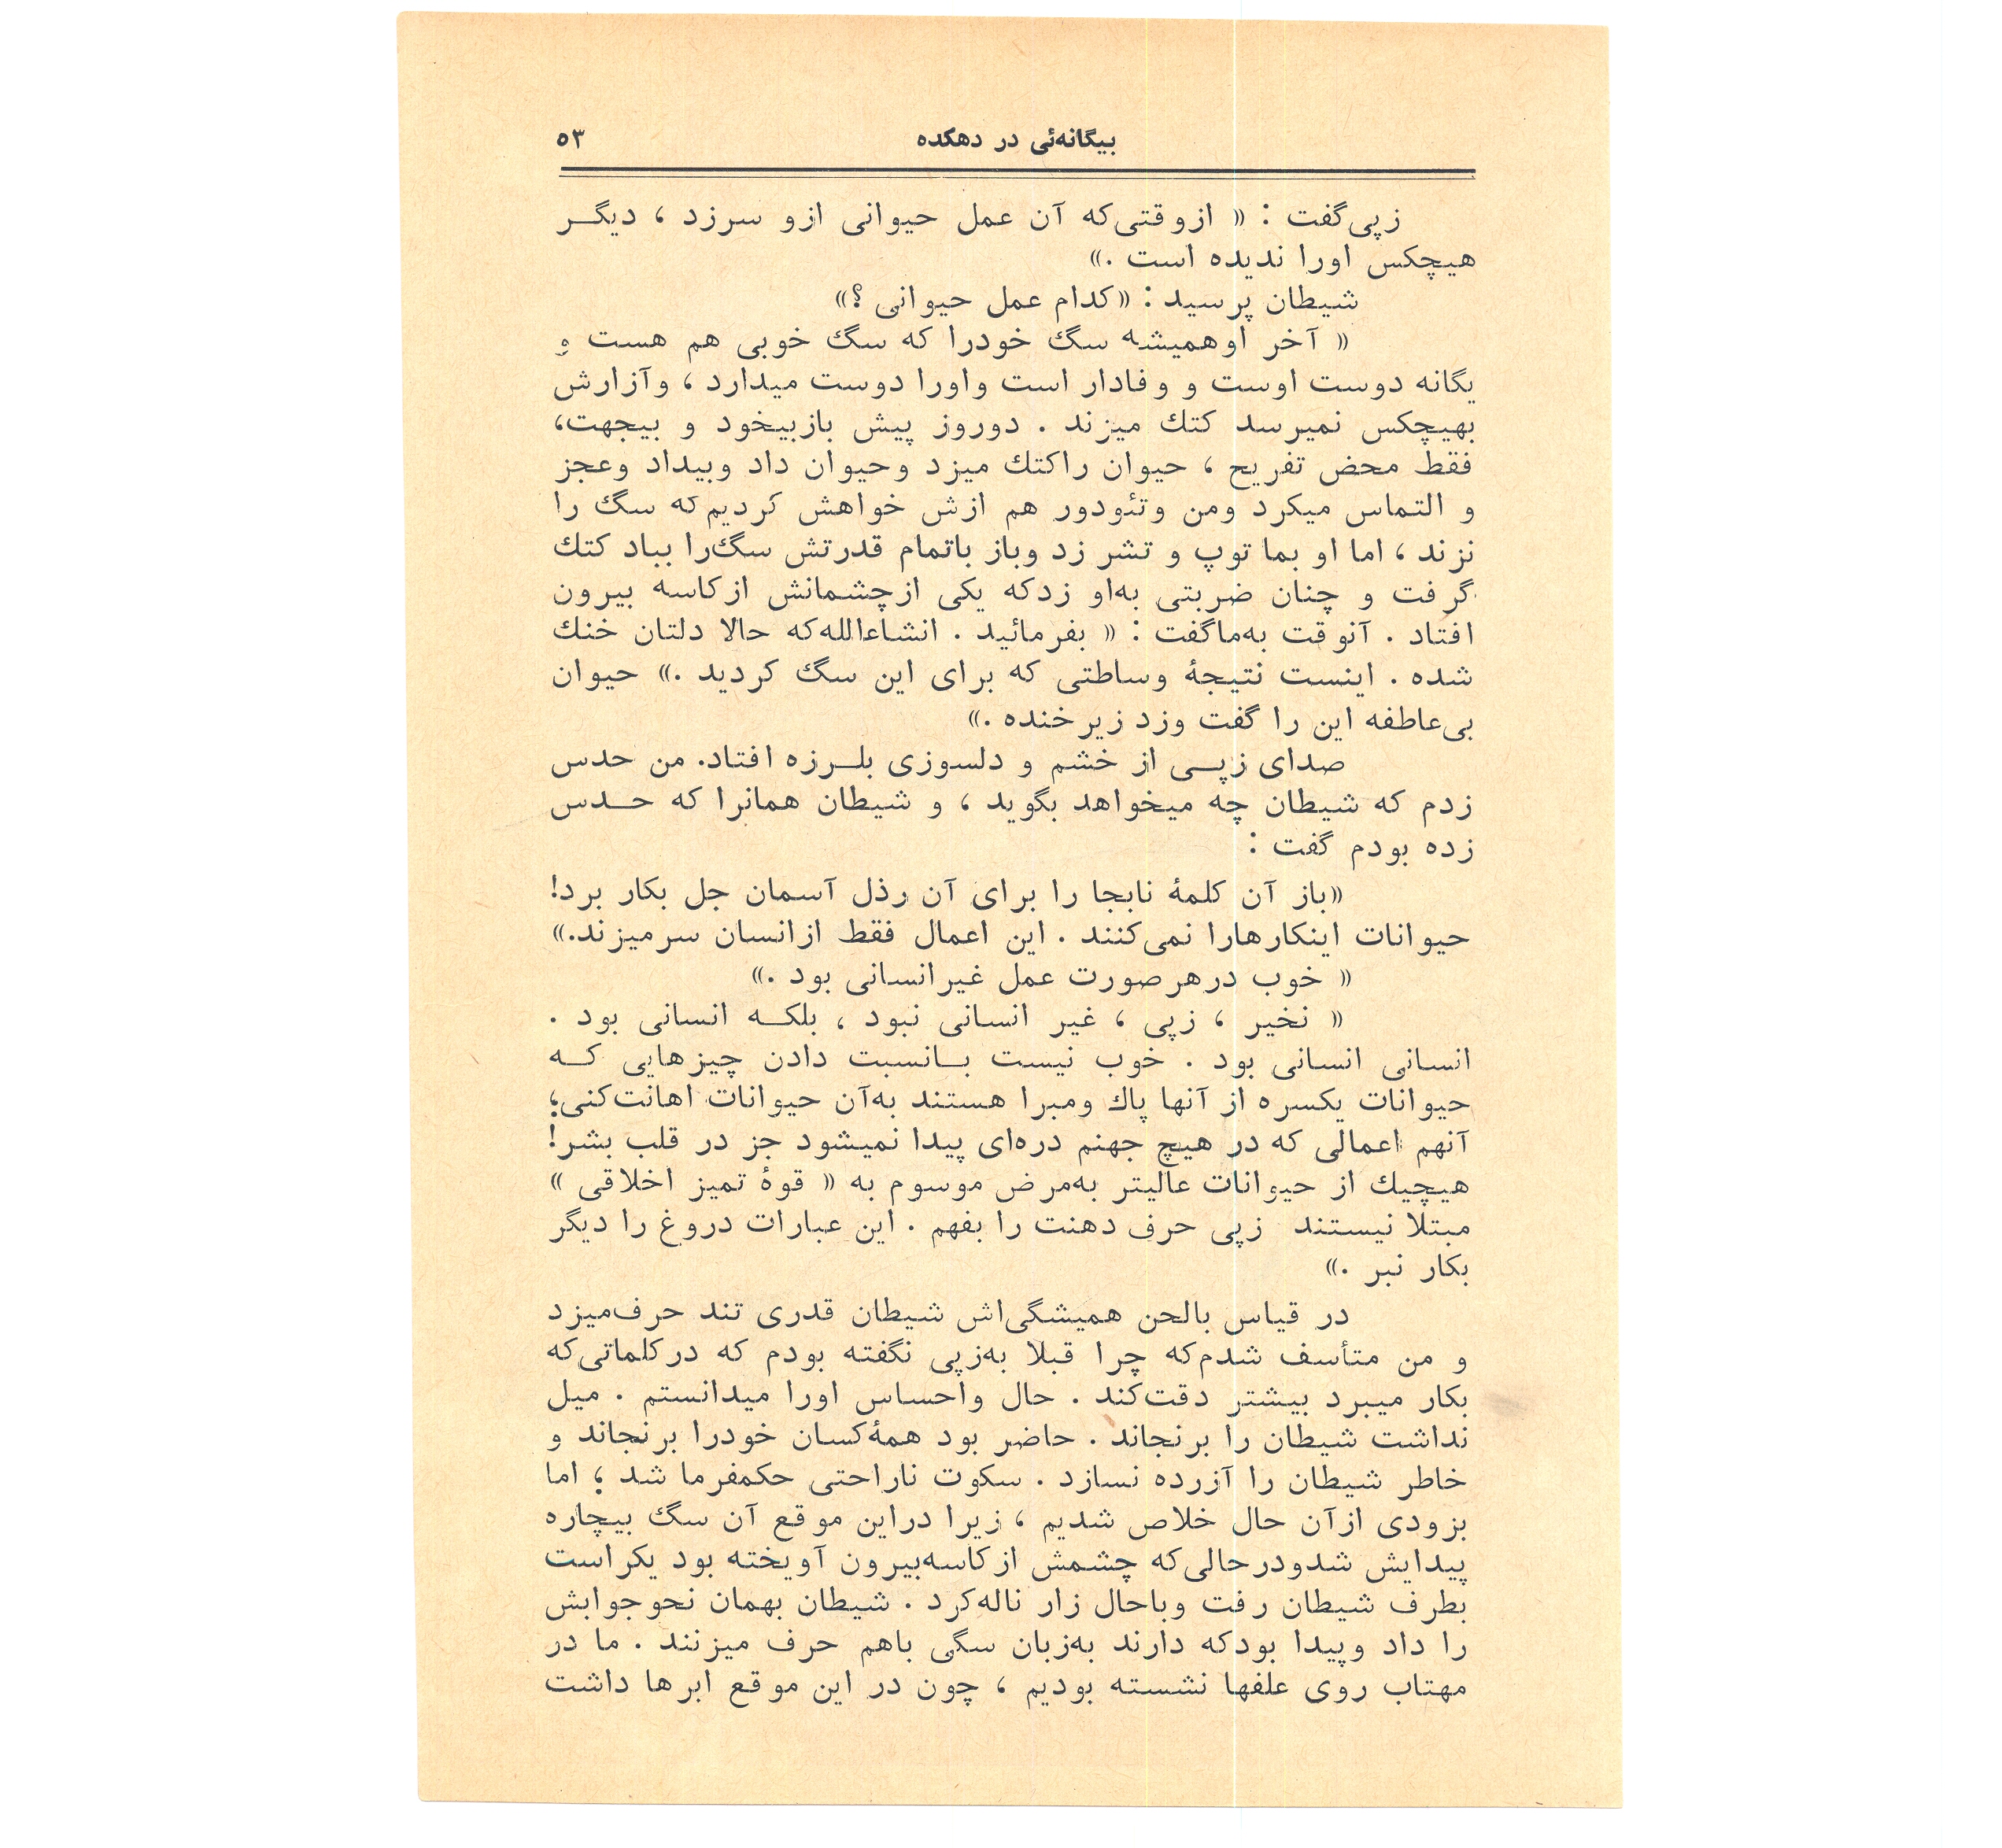 بیگانه‌ئی در دهکده ۵۳
زپی‌گفت : « ازوقتی‌که آن عمل حیوانی ازو سرزد ، دیگر
هیچکس اورا ندیده است .»
شیطان پرسید : «کدام عمل حیوانی ؟»
« آخر اوهمیشه سگ خودرا که سگ خوبی هم هست و
یگانه دوست اوست و وفادار است واورا دوست میدارد ، وآزارش
بهیچکس نمیرسد کتك میزند . دوروز پیش بازبیخود و بیجهت،
فقط محض تفریح ، حیوان راکتك میزد وحیوان داد وبیداد وعجز
و التماس میکرد ومن وتئودور هم ازش خواهش کردیم‌که سگ را
نزند ، اما او بما توپ و تشر زد وباز باتمام قدرتش سگ‌را بباد کتك
گرفت و چنان ضربتی به‌او زدکه یکی ازچشمانش ازکاسه بیرون
افتاد . آنوقت به‌ماگفت : « بفرمائید . انشاءالله‌که حالا دلتان خنك
شده . اینست نتیجهٔ وساطتی که برای این سگ کردید .» حیوان
بی‌عاطفه این را گفت وزد زیرخنده .»
صدای زپی از خشم و دلسوزی بلرزه افتاد. من حدس
زدم که شیطان چه میخواهد بگوید ، و شیطان همانرا که حدس
زده بودم گفت :
«باز آن کلمهٔ نابجا را برای آن رذل آسمان جل بکار برد!
حیوانات اینکارهارا نمی‌کنند . این اعمال فقط ازانسان سرمیزند.»
« خوب درهرصورت عمل غیرانسانی بود .»
« نخیر ، زپی ، غیر انسانی نبود ، بلکه انسانی بود .
انسانی انسانی بود . خوب نیست بانسبت دادن چیزهایی که
حیوانات یکسره از آنها پاك ومبرا هستند به‌آن حیوانات اهانت‌کنی؛
آنهم اعمالی که در هیچ جهنم دره‌ای پیدا نمیشود جز در قلب بشر!
هیچیك از حیوانات عالیتر به‌مرض موسوم به « قوهٔ تمیز اخلاقی »
مبتلا نیستند زپی حرف دهنت را بفهم . این عبارات دروغ را دیگر
بکار نبر .»
در قیاس بالحن همیشگی‌اش شیطان قدری تند حرف‌میزد
و من متأسف شدم‌که چرا قبلا به‌زپی نگفته بودم که درکلماتی‌که
بکار میبرد بیشتر دقت‌کند . حال واحساس اورا میدانستم . میل
نداشت شیطان را برنجاند . حاضر بود همهٔ‌کسان خودرا برنجاند و
خاطر شیطان را آزرده نسازد . سکوت ناراحتی حکمفرما شد ؛ اما
بزودی ازآن حال خلاص شدیم ، زیرا دراین موقع آن سگ بیچاره
پیدایش شدودرحالی‌که چشمش ازکاسه‌بیرون آویخته بود یکراست
بطرف شیطان رفت وباحال زار ناله‌کرد . شیطان بهمان نحوجوابش
را داد وپیدا بودکه دارند به‌زبان سگی باهم حرف میزنند . ما در
مهتاب روی علفها نشسته بودیم ، چون در این موقع ابرها داشت